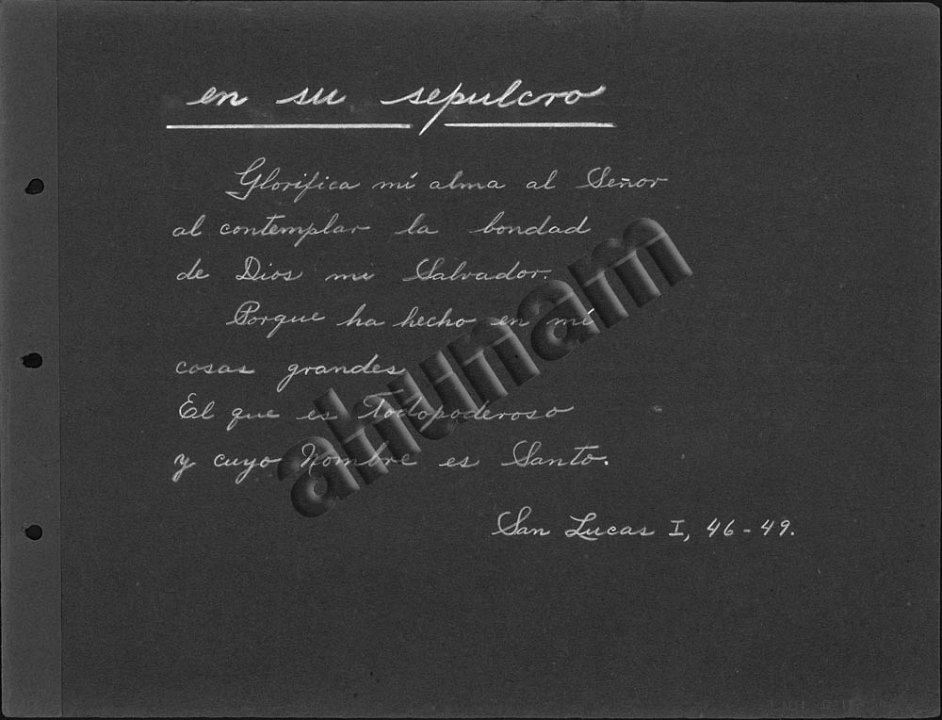 en su sepulcro
Glorifica mi alma al Señor
al contemplar la bondad
de Dios mi Salvador.
Porque ha hecho en mí
cosas grandes
El que es Todopoderoso
y cuyo Nombre es Santo.
San Lucas I, 46-49.
ahunam